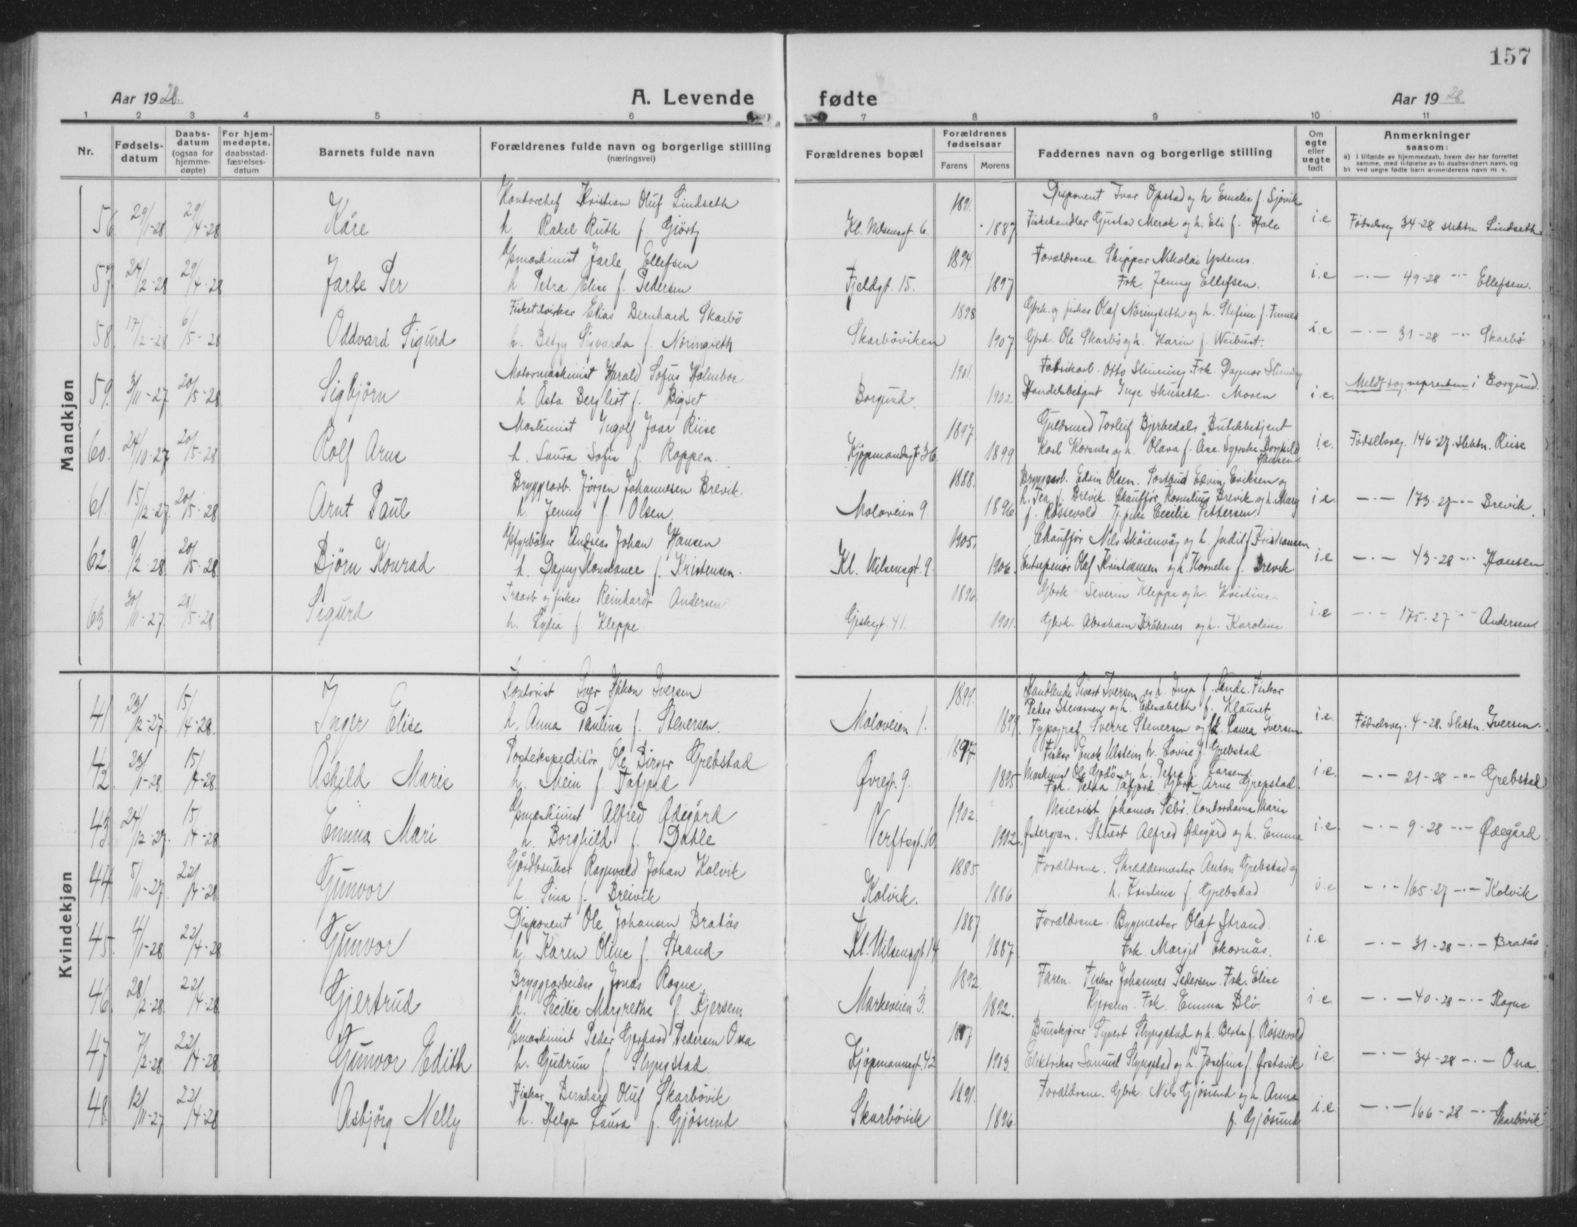 157
Aar 1928.
A. Levende fødte
Aar 1928
1 2 3 4 5 6 7 8 9 10 11
Nr.
Fødsels-
datum
Daabs-
datum
(ogsaa for
hjemme-
døpte)
For hjem-
medøpte,
daabsstad-
fæstelses-
datum
Barnets fulde navn
Forældrenes fulde navn og borgerlige stilling
(næringsvei)
Forældrenes bopæl
Forældrenes
fødselsaar
Farens Morens
Faddernes navn og borgerlige stilling
Om
egte
eller
uegte
født
Anmerkninger
saasom:
Mandkjøn
56 29/1-28 29/4-28 Kåre
Kontorchef Kristian Oluf Lindseth
h. Rakel Ruth f. Gjørtz
Kl. Nilsensgt 6. 1891. 1887
Disponent Ivar Opstad og h. Emelie f. Sjøvik
Fiskehandler Gustav Merok og h. Eli f. Hole
i.e Fødselsreg 34-28 slektn. Lindseth
57 24/2-28 29/4-28 Jarle Per
Maskinist Jarle Ellefsen
h. Petra Elise f. Pedersen
Fjeldgt. 15. 1894 1897
Forældrene. Skipper Nikolai Ystenes.
Frk. Jenny Ellefsen.
i.e 49-28 Ellefsen.
58. 17/2-28 6/5-28 Oddvard Sigurd
Elias Bernhard Skarbø
h. Betzy Sigvarda f. Nøringseth
Skarbøviken 1898 1907
Gbrk. og fisker Olaf Nøringseth og h. Stefine f.
Gbrk. Ole Skarbø og h. Karin f.
i.e 31-28 Skarbø
59. 3/11-27 20/5-28 Sigbjørn
Motormaskinist Harald Sofus Holmboe
h. Asta Berglist f. Bigset
Borgund. 1901. 1902
Fabrikarb. Otto Slinning Frk. Dagmar
Handelsbetjent Inge
i.e. Meldt sognepresten i Borgund.
60. 24/10-27 20/5-28 Rolf Arne
Maskinist Ingolf Ivar Riise
h. Laura Sofie f. Roppen.
Kjøpmandsgt 36 1897 1899
Guldsmed Torleif Bjerkedal. Butikbetjent
Karl Korsnes og h. Olava f. Ase. Sypeske Borghild
Hansen
i.e. Fødselsreg. 146-27. slektn. Riise
61. 15/12-27. 20/5-28 Arnt Paul
Bryggearb. Jørgen Johannesen Brevik.
h. Jenny f. Olsen
Moloveien 9 1888. 1896
Bryggearb. Edvin Olsen. Postbud Edvin Eriksen og
h. Tea f. Brevik. Chauffør Kornelius Brevik og h. Mary
f. Røssevold. Cecilie Pettersen
i.e 173-27 Brevik.
62 9/2-28. 20/5-28 Bjørn Konrad
Andreas Johan Hansen
h. Dagny Konstance f. Kristensen.
Kl. Nilsensgt. 9 1905. 1906.
Chauffør Nils Skåienvåg og h. Judit f. Kristiansen
Entreprenør Olaf Kristiansen og h. Kornelie f. Brevik
i.e 43-28 Hansen
63 30/11-27. 28/5-28 Sigurd
og fisker Reinhardt Andersen
h. Lydia f. Kleppe.
41. 1896 1901.
Gbrk. Severin Kleppe og h. Kristine
Gbrk. Abraham og h. Karoline
i.e 175-27 Andersen
Kvindekjøn
41 23/12-27. 15/4-28. Inger Elise
Kontorist Inge Håkon Iversen
h. Anna Pauline f. Stenersen.
Moloveien 1. 1899. 1899.
Handlende Sivert Iversen og h. Inga f. Sande. Fisker
Peder Stenersen og h. Elisabeth f. Klauset
Typograf Sverre Stenersen og Laura Iversen
i.e. Fødselsreg. 4-28. Slektn. Iversen.
42. 23/1-28. 15/4-28. Åshild Marie
Postekspeditør Ole Birger Grebstad
h. f. Tafjord
Øvregt. 9. 1897 1895
Fisker Enok Ulstein h. Lovise f. Grebstad
Maskinist Ole og h. Petra f. Larsen
Frk. Tafjord Gbrk Arne Grepstad.
i.e. 21-28 Grebstad
43 24/12-27. 15/4-28 Emma Mari
Maskinist Alfred Ødegård
h. Borghild f. Dahle
Verftsgt. 10 1902. 1902
Meierist Johannes Sæbø. Kontordame Marie
Alfred Ødegård og h. Emma
i.e. 9-28 Ødegård
44 5/11-27. 22/4-28 Gunvor
Gårdbruker Ragnvald Johan Kolvik
h. Lina f. Breivik
Kolvik. 1885. 1886
Forældrene. Skræddermester Anton Grebstad og
h. Kristine f. Grebstad
i.e 165-27 Kolvik
45 4/1-28 22/4-28 Gunvor
Disponent Ole Johansen Bratås
h. Karen Oline f. Strand
Kl. Nilsensgt. 14 1887 1887
Forældrene. Bygmester Olaf Strand.
Frk. Margit Ekornås.
i.e 31-28 Bratås
46 28/2-28. 22/4-28. Gjertrud
Bryggearbeider Jonas Rogne
h. Cecilie Margrethe f. Hjersem
Markeveien 3. 1892 1892.
Faren. Fisker Johannes Pedersen. Frk. Elise
Hjersem. Frk. Emma Blø.
i.e 40-28 Rogne
47 7/2-28 22/4-28 Gunvor Edith
Maskinist Peder Gerhard Pedersen Ona
h. Gudrun f. Slyngstad.
Kjøpmannsgt. 42 1903
Syvert Slyngstad og h. Berta f. Røssevold
Elektriker Samuel Slyngstad og h. Josefine f.
i.e 34-28 Ona
48. 12/11-27 22/4-28 Asbjørg Nelly
Fisker Bernhard Oluf Skarbøvik
h. Helga Laura f. Gjøsund
Skarbøvik 1891. 1896
Forældrene. Gbrk. Nils Gjøsund og h. Anna
f. Gjøsund
i.e 166-28 Skarbøvik